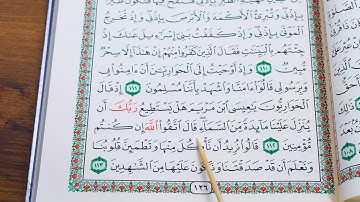 بِإِذْنِي وَتُبْرِئُ ٱلْأَكْمَهَ وَٱلْأَبْرَصَ بِإِذْنِي وَإِذْ تُخْرِجُ
ٱلْمَوْتَىٰ بِإِذْنِي وَإِذْ كَفَفْتُ بَنِيٓ إِسْرَٰٓءِيلَ عَنكَ إِذْ
جِئْتَهُم بِٱلْبَيِّنَٰتِ فَقَالَ ٱلَّذِينَ كَفَرُوا۟ مِنْهُمْ إِنْ هَٰذَآ إِلَّا سِحْرٌ
مُّبِينٌ ١١٠ وَإِذْ أَوْحَيْتُ إِلَى ٱلْحَوَارِيِّـۧنَ أَنْ ءَامِنُوا۟ بِى
وَبِرَسُولِى قَالُوٓا۟ ءَامَنَّا وَٱشْهَدْ بِأَنَّنَا مُسْلِمُونَ ١١١ إِذْ قَالَ
ٱلْحَوَارِيُّونَ يَٰعِيسَى ٱبْنَ مَرْيَمَ هَلْ يَسْتَطِيعُ رَبُّكَ أَن
يُنَزِّلَ عَلَيْنَا مَآئِدَةً مِّنَ ٱلسَّمَآءِ قَالَ ٱتَّقُوا۟ ٱللَّهَ إِن كُنتُم
مُّؤْمِنِينَ ١١٢ قَالُوا۟ نُرِيدُ أَن نَّأْكُلَ مِنْهَا وَتَطْمَئِنَّ قُلُوبُنَا
وَنَعْلَمَ أَن قَدْ صَدَقْتَنَا وَنَكُونَ عَلَيْهَا مِنَ ٱلشَّٰهِدِينَ ١١٣
١٢٦